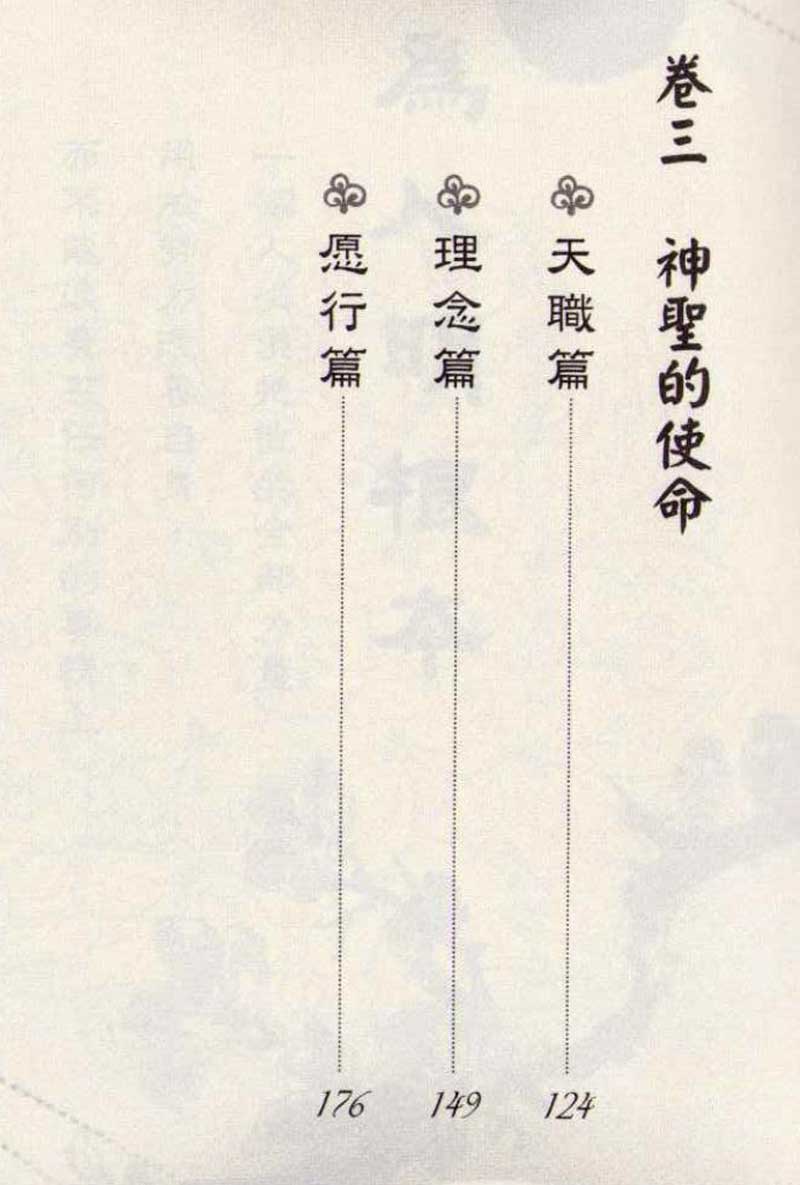 卷三　神聖的使命
天職篇 124
理念篇 149
愿行篇 176